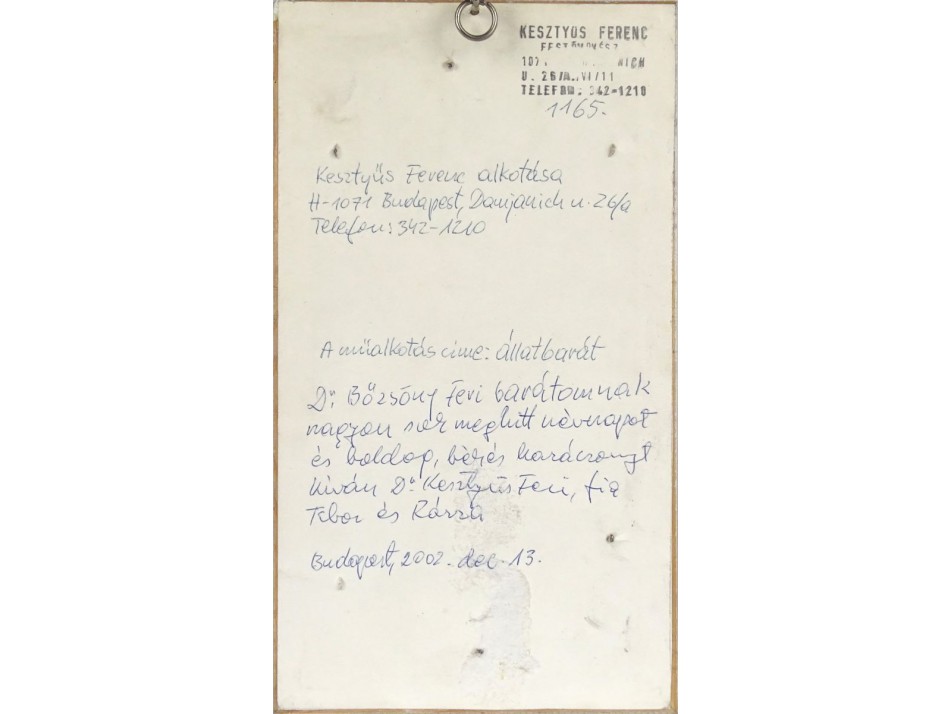 KESZTYÜS FERENC
FESTŐMŰVÉSZ
107. NICH
U. 26/A. VI/11
TELEFON: 342-1210
1165.
Kesztyűs Ferenc alkotása
H-1071 Budapest, Damjanich u. 26/a
Telefon: 342-1210
A műalkotás címe: állatbarát
Dr. Bőzsöny Feri barátomnak
nagyon sok meghitt névnapot
és boldog, békés karácsonyt
kíván Dr. Kesztyűs Feri, fia
Tibor és Rózsa
Budapest, 2002. dec. 13.